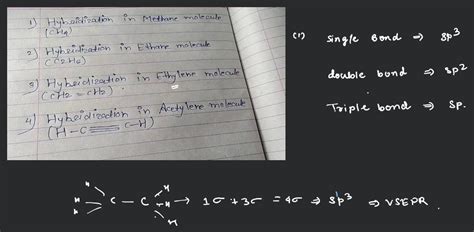 1) Hybridization in Methane molecule
(CH4)
2) Hybridization in Ethane molecule
(C2H6)
3) Hybridization in Ethylene molecule
(CH2=CH2)
4) Hybridization in Acetylene molecule
(H-C≡C-H)
(1) Single Bond ⇒ sp³
double bond ⇒ sp²
Triple bond ⇒ sp.
H H
H C - C H → 1σ + 3σ = 4σ ⇒ sp³ ⇒ VSEPR.
H H